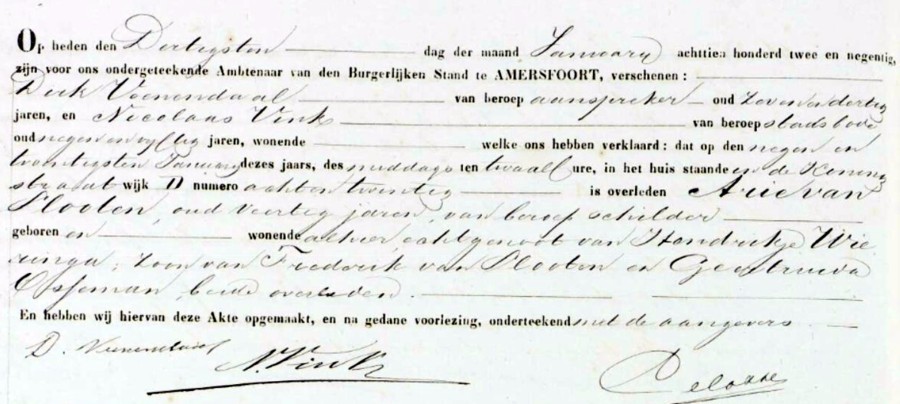 Op heden den Dertigsten dag der maand January achttien honderd twee en negentig,
zijn voor ons ondergeteekende Ambtenaar van den Burgerlijken Stand te AMERSFOORT, verschenen :
Dirk Veenendaal van beroep aanspreker oud zevenendertig
jaren, en Nicolaas Vink van beroep stadsbode
oud negen en vyftig jaren, wonende welke ons hebben verklaard : dat op den negen en
twintigsten January dezes jaars, des middags ten twaalf ure, in het huis staande in de Koning
straat wijk D numero achten twintig is overleden Arie van
Slooten, oud veertig jaren, van beroep schilder
geboren en wonende alhier echtgenoot van Hendrikje Wie
ringa, zoon van Frederik van Slooten en Geertruida
beide overleden.
En hebben wij hiervan deze Akte opgemaakt, en na gedane voorlezing, onderteekend met de aangevers.
D. Veenendaal
N. Vink